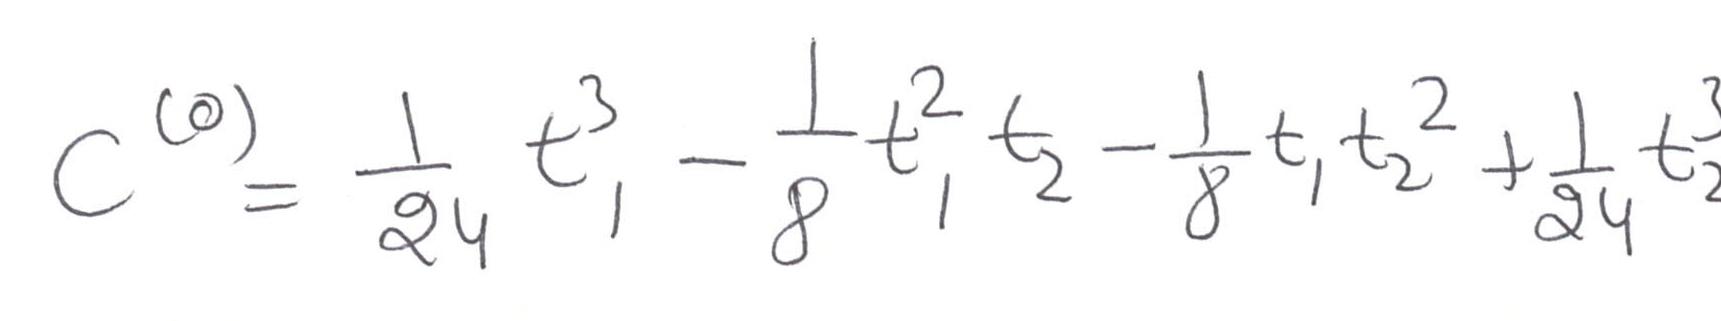 C^{(0)} = \frac{1}{24} t_1^3 - \frac{1}{8} t_1^2 t_2 - \frac{1}{8} t_1 t_2^2 + \frac{1}{24} t_2^3